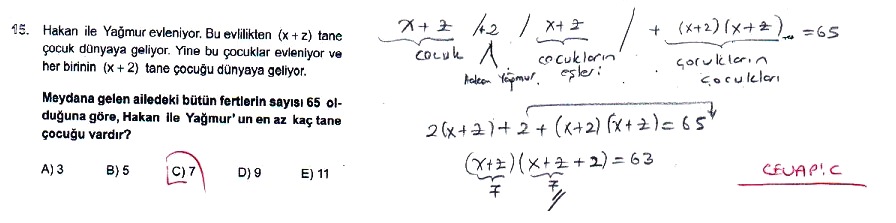 15. Hakan ile Yağmur evleniyor. Bu evlilikten (x + z) tane
çocuk dünyaya geliyor. Yine bu çocuklar evleniyor ve
her birinin (x + 2) tane çocuğu dünyaya geliyor.
Meydana gelen ailedeki bütün fertlerin sayısı 65 ol-
duğuna göre, Hakan ile Yağmur'un en az kaç tane
çocuğu vardır?
A) 3 B) 5 C) 7 D) 9 E) 11
x + z / +2 / x + z / + (x+2)(x+z) = 65
çocuk Hakan Yağmur çocukların eşleri çocukların çocukları
2(x+z) + 2 + (x+2)(x+z) = 65
(x+z)(x+z+2) = 63
7 7
CEVAP: C